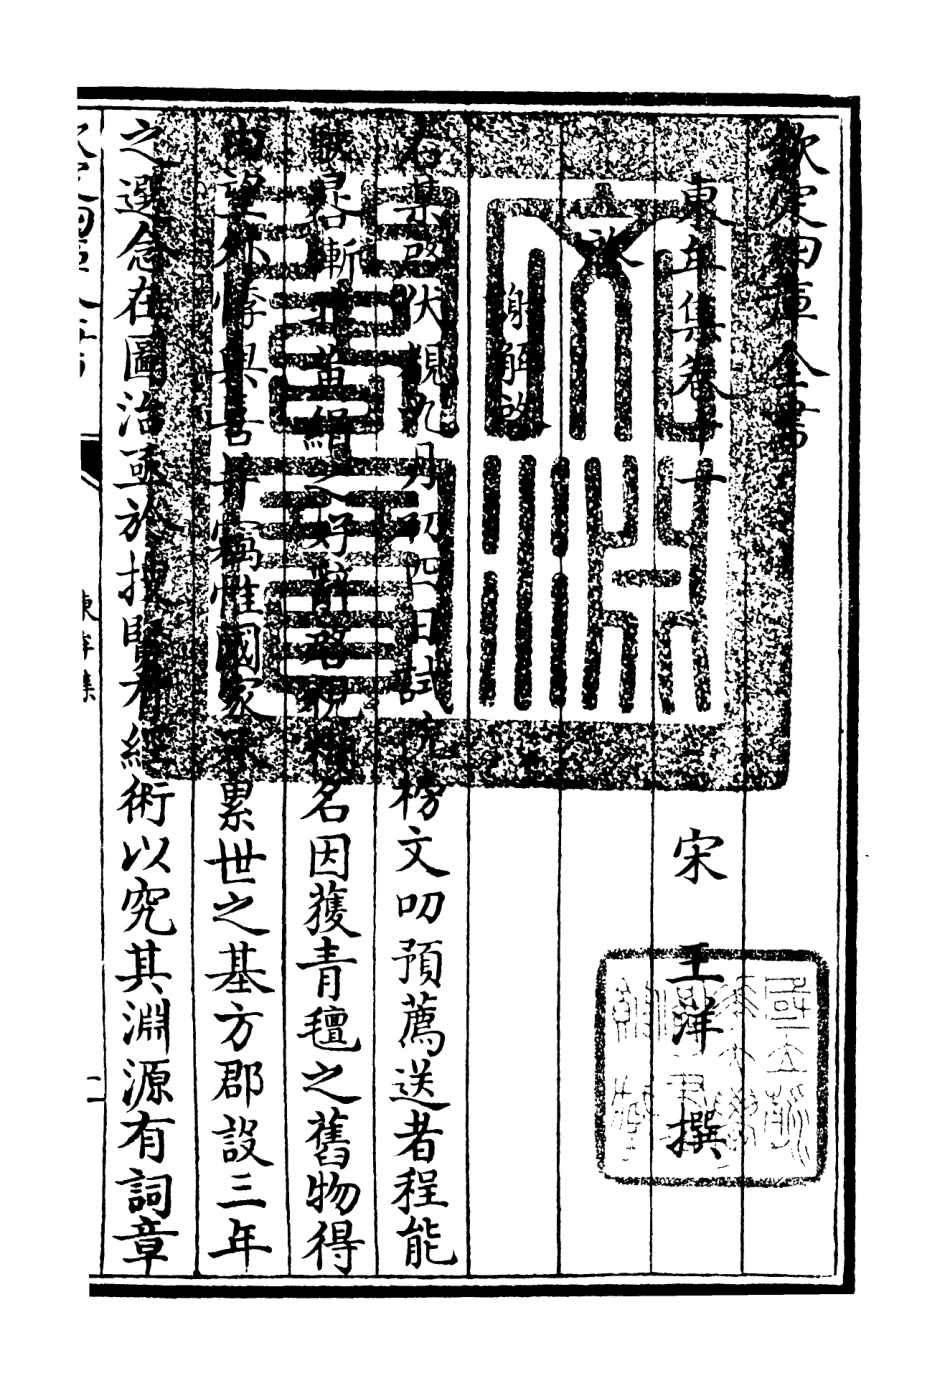 欽定四庫全書
東牟集卷十一
宋 王洋 撰
啟
謝解啟
右某啓伏覩九月初四日試院榜文叨預薦送者程能
畧漸 苗絹之好辭名視榜名因獲青氊之舊物得
由望外悸與喜并竊惟國家 累世之基方郡設三年
之選念在圖治亟於搜賢有經術以究其淵源有詞章
欽定四庫全書
東牟集
二